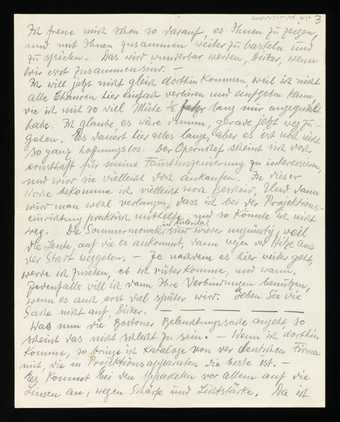 3
Ich freue mich schon so darauf, es Ihnen zu zeigen,
und mit Ihnen zusammen weiter zu basteln und
zu spielen. Das wird wunderbar werden, Biker, wenn
wir erst zusammen sind. —
Ich will jetzt nicht gleich dorthin kommen, weil ich nicht
alle Chancen hier einfach verlieren und aufgeben kann,
die ich mit so viel Mühe so lang mir angequält
habe. Ich glaube es wäre dumm, gerade jetzt weg zu
gehen. Es dauert hier alles lange, aber es ist noch nicht
so ganz hoffnungslos. Der Opernchef scheint sich doch
ernsthaft für meine Erfindung zu interessieren,
und wird sie vielleicht doch ankaufen. In dieser
Woche bekomme ich vielleicht noch Bescheid. Und dann
wird man wohl verlangen, dass ich bei der Projektions-
einrichtung praktisch mithelfe und so könnte ich nicht
weg. Die Sommermonate sind immer ungünstig, weil
die Leute, auf die es ankommt, dann wegen der Hitze aus
der Stadt weggehen. — Je nachdem es hier weiter geht,
werde ich zusehen, ob ich rüber komme, und wann.
Jedenfalls will ich dann Ihre Verbindungen benützen,
wenn es auch erst viel später wird. Geben Sie die
Sache nicht auf, Biker. —
Was nun die Bostoner Beleuchtungssache angeht, so
scheint das nicht schlecht zu sein. — Wenn ich dorthin
komme, so bringe ich Kataloge von der deutschen Firma
mit, die in Projektionsapparaten die beste ist. —
Es kommt bei den Apparaten vor allem auf die
Linsen an, wegen Schärfe und Lichtstärke. Da ist